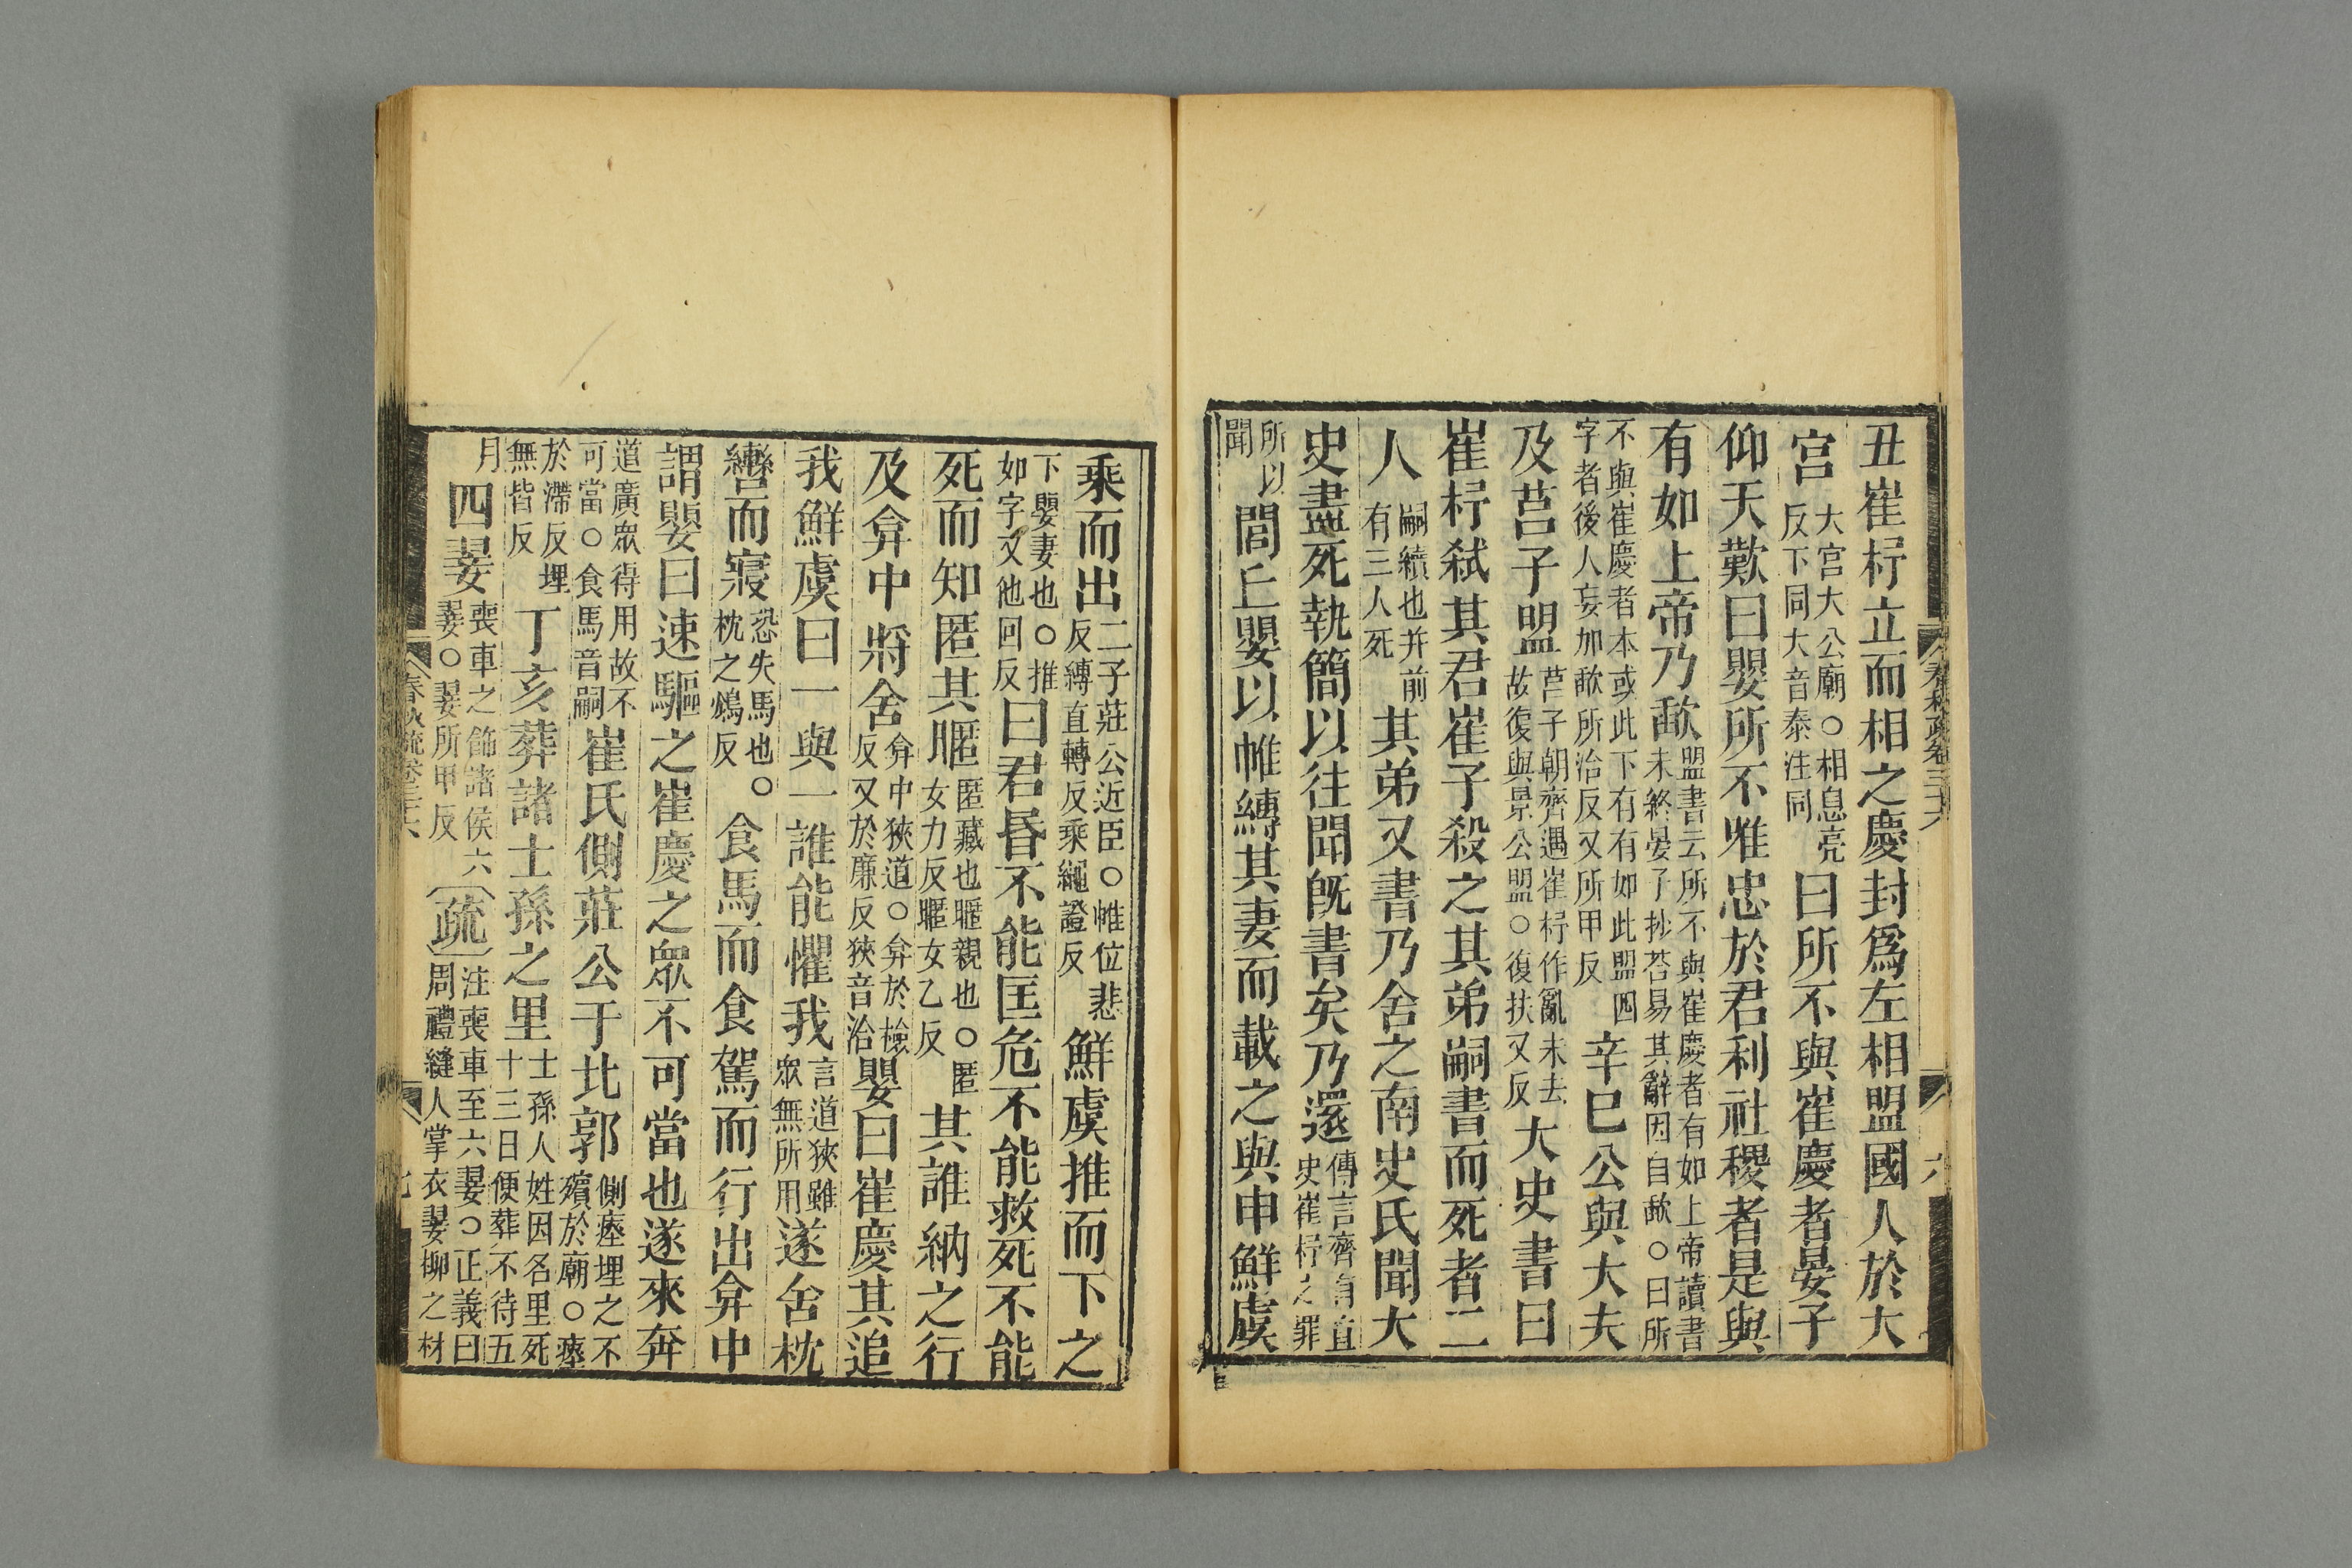 春秋疏卷三十六 六
丑崔杼立而相之慶封爲左相盟國人於大
宮大宮大公廟○相息亮反下同大音泰注同曰所不與崔慶者晏子
仰天歎曰嬰所不唯忠於君利社稷者是與
有如上帝乃歃盟書云所不與崔慶者有如上帝讀書未終晏子抄荅易其辭因自歃○曰所
不與崔慶者本或此下有有如此盟四字者後人妄加歃所洽反又所甲反辛巳公與大夫
及莒子盟莒子朝齊遇崔杼作亂未去故復與景公盟○復扶又反大史書曰
崔杼弑其君崔子殺之其弟嗣書而死者二
人嗣續也并前有三人死其弟又書乃舍之南史氏聞大
史盡死執簡以往聞旣書矣乃還傳言齊有直史崔杼之罪
所以聞閭丘嬰以帷縛其妻而載之與申鮮虞
乘而出二子莊公近臣○帷位悲反縛直轉反乘繩證反鮮虞推而下之
下嬰妻也○推如字又他回反曰君昏不能匡危不能救死不能
死而知匿其暱匿藏也暱親也○匿女力反暱女乙反其誰納之行
及弇中將舍弇中狹道○弇於檢反又於廉反狹音洽嬰曰崔慶其追
我鮮虞曰一與一誰能懼我言道狹雖衆無所用遂舍枕
轡而寢恐失馬也○枕之鴆反食馬而食駕而行出弇中
謂嬰曰速驅之崔慶之眾不可當也遂來奔
道廣眾得用故不可當○食馬音嗣崔氏側莊公于北郭側瘞埋之不殯於廟○瘞
於滯反埋無皆反丁亥葬諸士孫之里士孫人姓因名里死十三日便葬不待五
月四翣喪車之飾諸侯六翣○翣所甲反疏注喪車至六翣○正義曰周禮縫人掌衣翣柳之材
春秋疏卷三十六